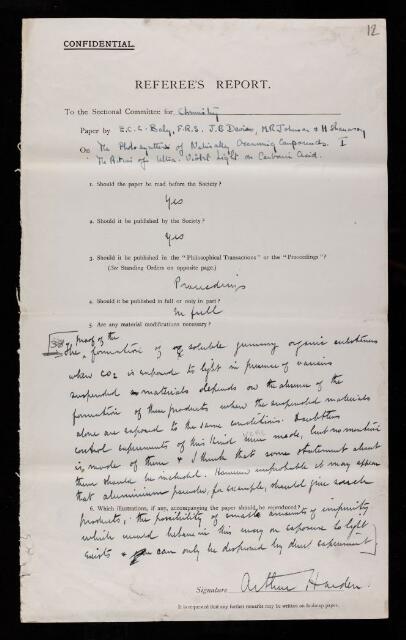 12
CONFIDENTIAL.
REFEREE'S REPORT.
To the Sectional Committee for Chemistry
Paper by E.C.C. Baly, F.R.S. J.B Davies, M.R. Johnson & H Shanassy
On The Photosynthesis of Naturally Occurring Compounds. I
The Action of Ultra-Violet Light on Carbonic Acid.
1. Should the paper be read before the Society?
Yes
2. Should it be published by the Society?
Yes
3. Should it be published in the "Philosophical Transactions" or the "Proceedings"?
(See Standing Orders on opposite page.)
Proceedings
4. Should it be published in full or only in part?
In full
5. Are any material modifications necessary?
proof of the
The formation of soluble gummy organic substances
when CO2 is exposed to light in presence of various
suspended materials depends on the absence of the
formation of these products when the suspended materials
alone are exposed to the same conditions. Doubtless
control experiments of this kind were made, but no mention
is made of them & I think that some statement about
them should be included. However improbable it may appear
that aluminium powder, for example, should give such
6. Which illustrations, if any, accompanying the paper should be reproduced?
products, the possibility of small amounts of impurity
which would behave in this way on exposure to light
exists & can only be disproved by direct experiment]
Signature Arthur Harden.
It is requested that any further remarks may be written on foolscap paper.